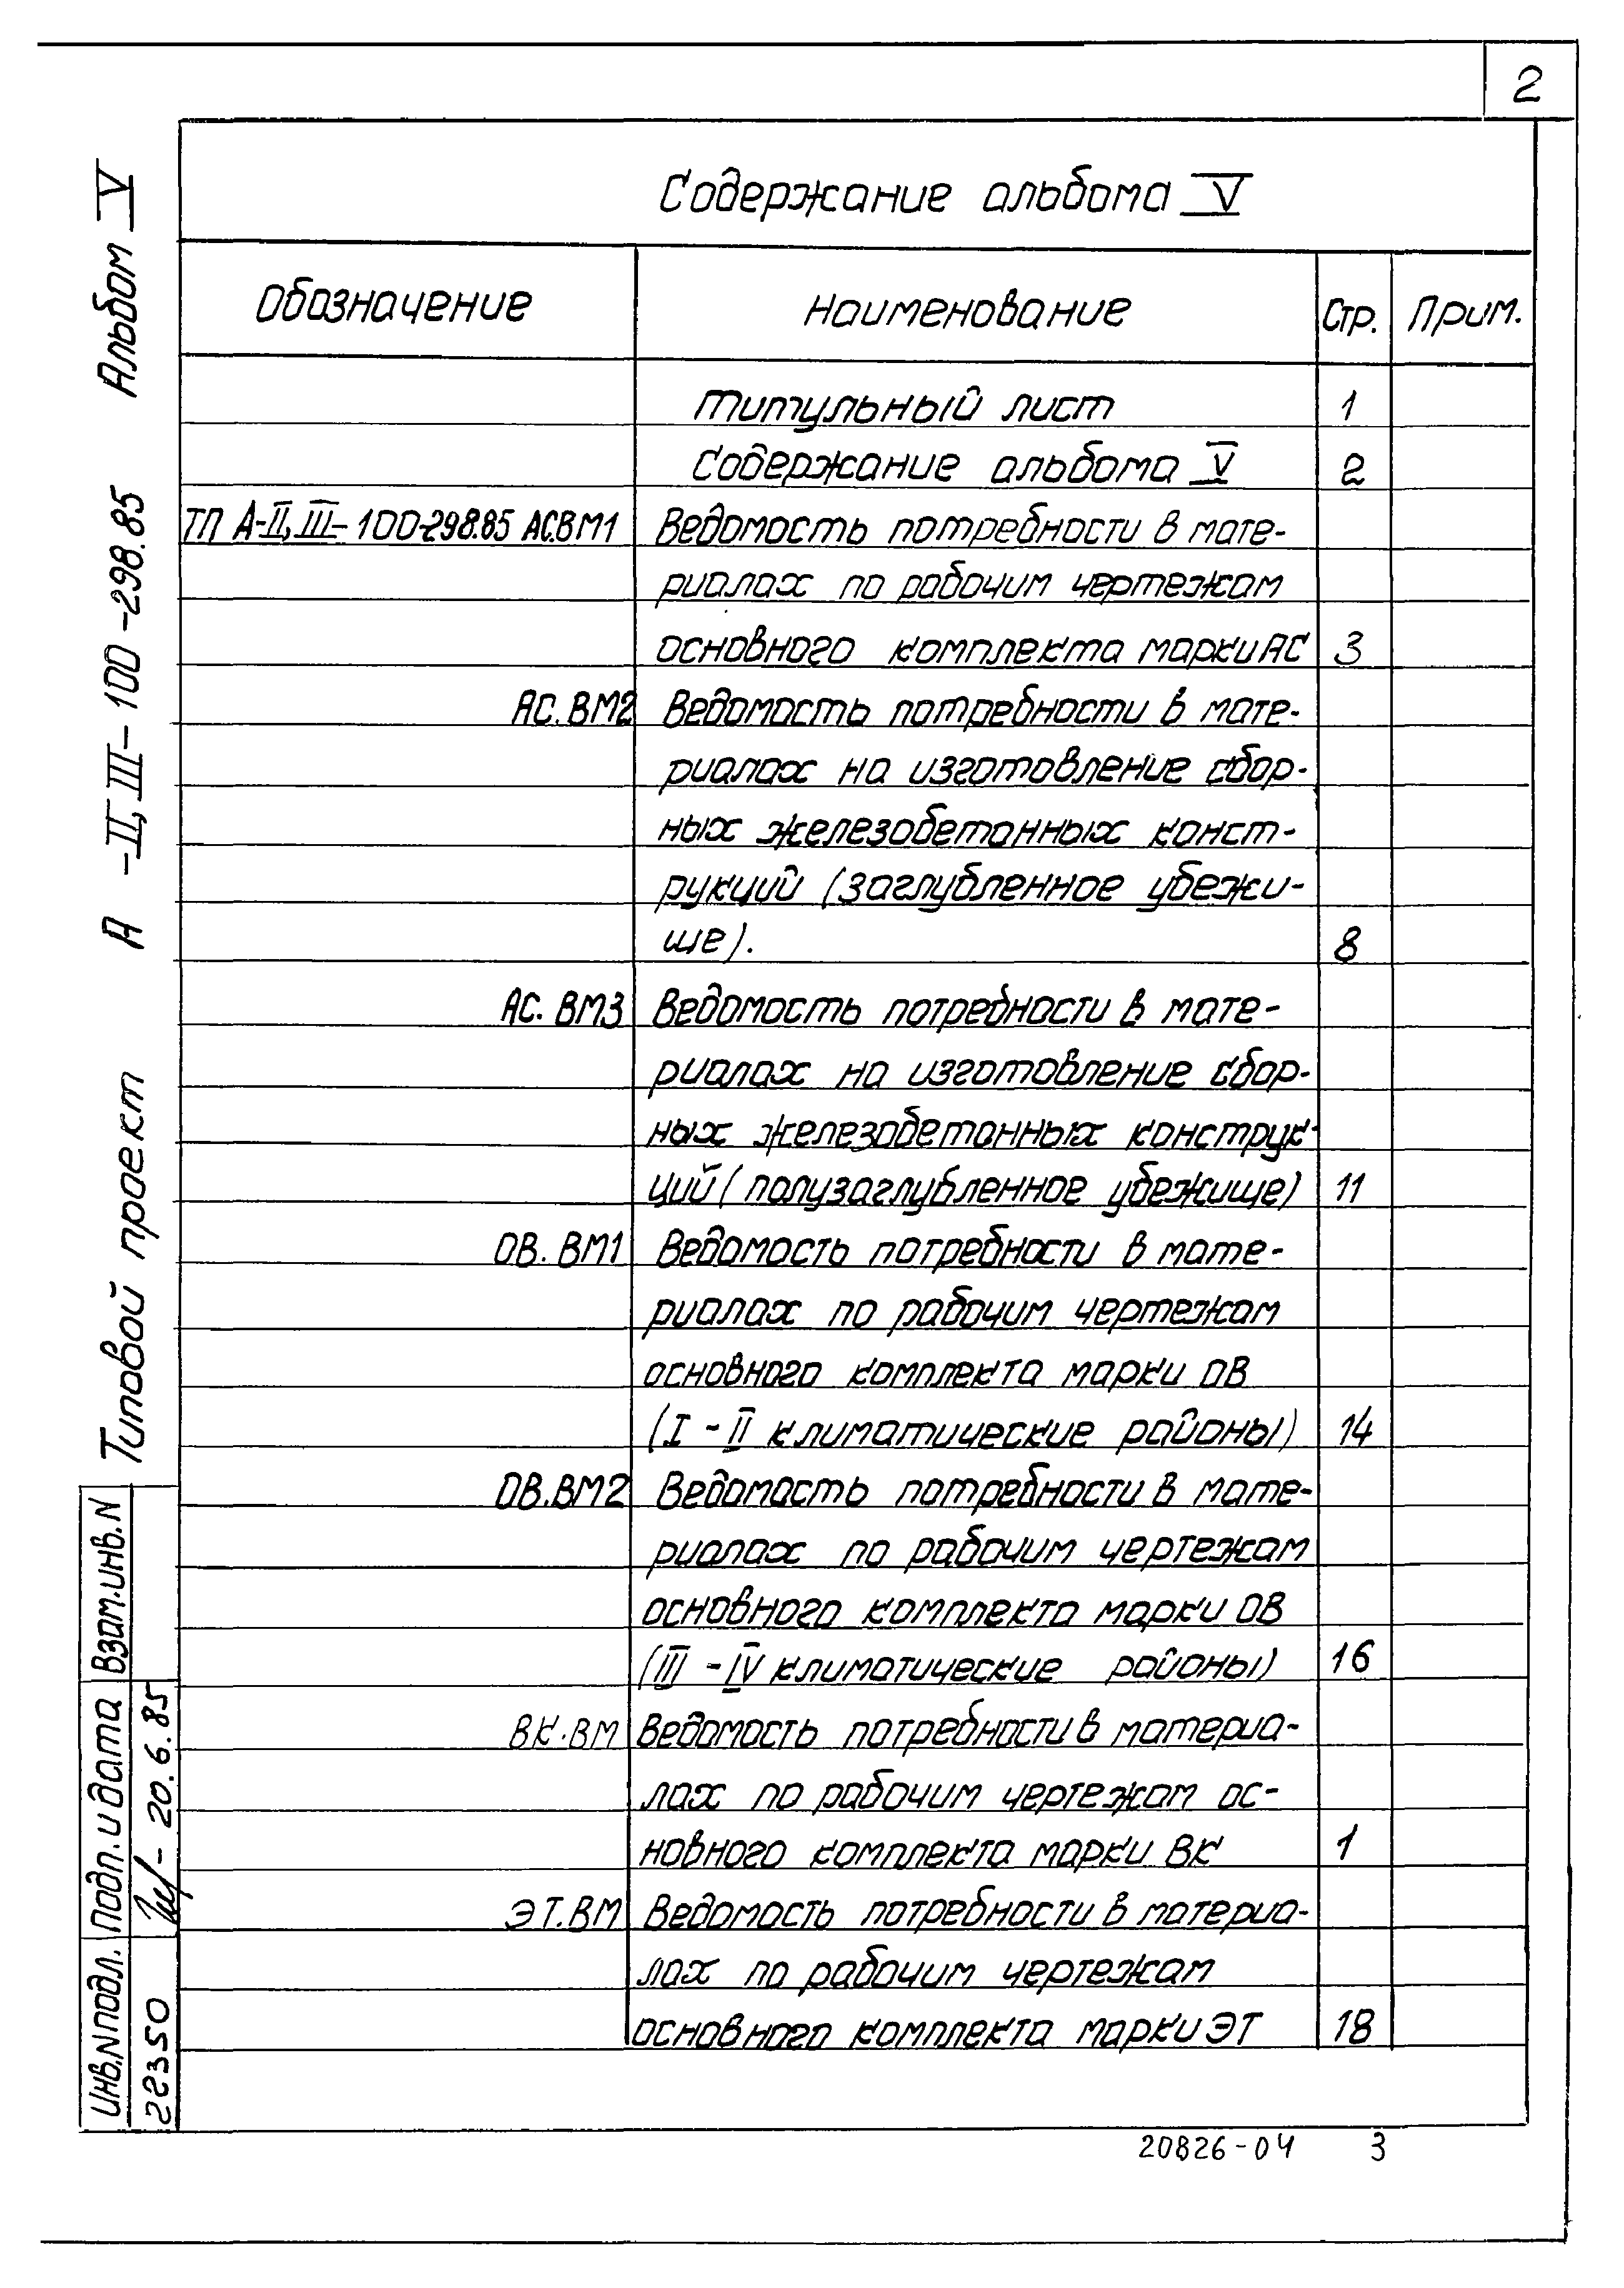 2
Содержание альбома V
Обозначение Наименование Стр. Прим.
Титульный лист 1
Содержание альбома V 2
ТП А-II, III-100-298.85 АС.ВМ1 Ведомость потребности в мате-
риалах по рабочим чертежам
основного комплекта марки АС 3
АС.ВМ2 Ведомость потребности в мате-
риалах на изготовление сбор-
ных железобетонных конст-
рукций (заглубленное убежи-
ще). 8
АС. ВМ3 Ведомость потребности в мате-
риалах на изготовление сбор-
ных железобетонных конструк-
ций (полузаглубленное убежище) 11
ОВ. ВМ1 Ведомость потребности в мате-
риалах по рабочим чертежам
основного комплекта марки ОВ
(I - II климатические районы) 14
ОВ.ВМ2 Ведомость потребности в мате-
риалах по рабочим чертежам
основного комплекта марки ОВ
(III - IV климатические районы) 16
ВК.ВМ Ведомость потребности в материа-
лах по рабочим чертежам ос-
новного комплекта марки ВК 1
ЭТ.ВМ Ведомость потребности в материа-
лах по рабочим чертежам
основного комплекта марки ЭТ 18
Типовой проект А -II, III-100-298.85 Альбом V
Взам.инв.N
Подп. и дата 20.6.85
Инв.N подл. 22350
20826-04 3